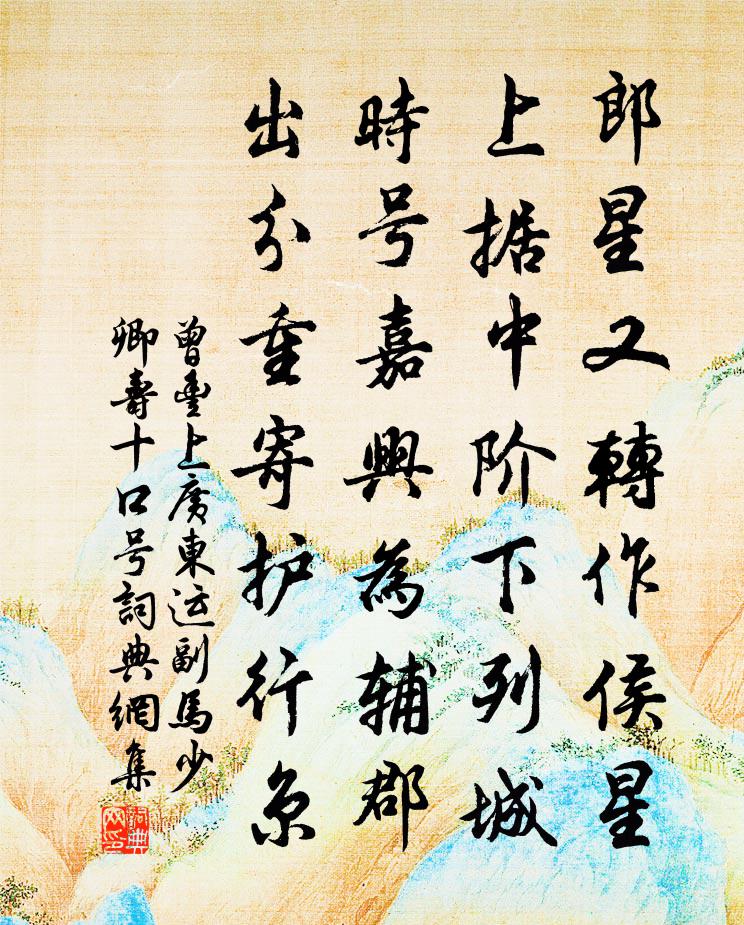 郎星又轉作侯星
上据中阶下列城
時号嘉興為辅郡
出分重寄护行京
曾豊上廣東运副馬少
卿壽十口号詞典網集
詞典